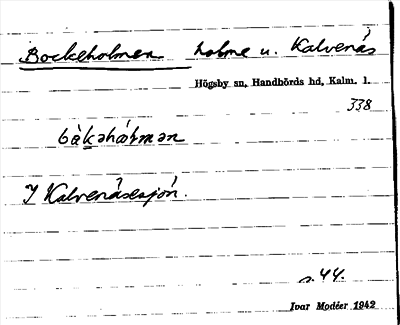 Bockeholmen holme u. Kalvenäs
Högsby sn, Handbörds hd, Kalm. l.
338
bàkəhått​mən
I Kalvenäsesjön.
s. 44.
Ivar Modéer 1942